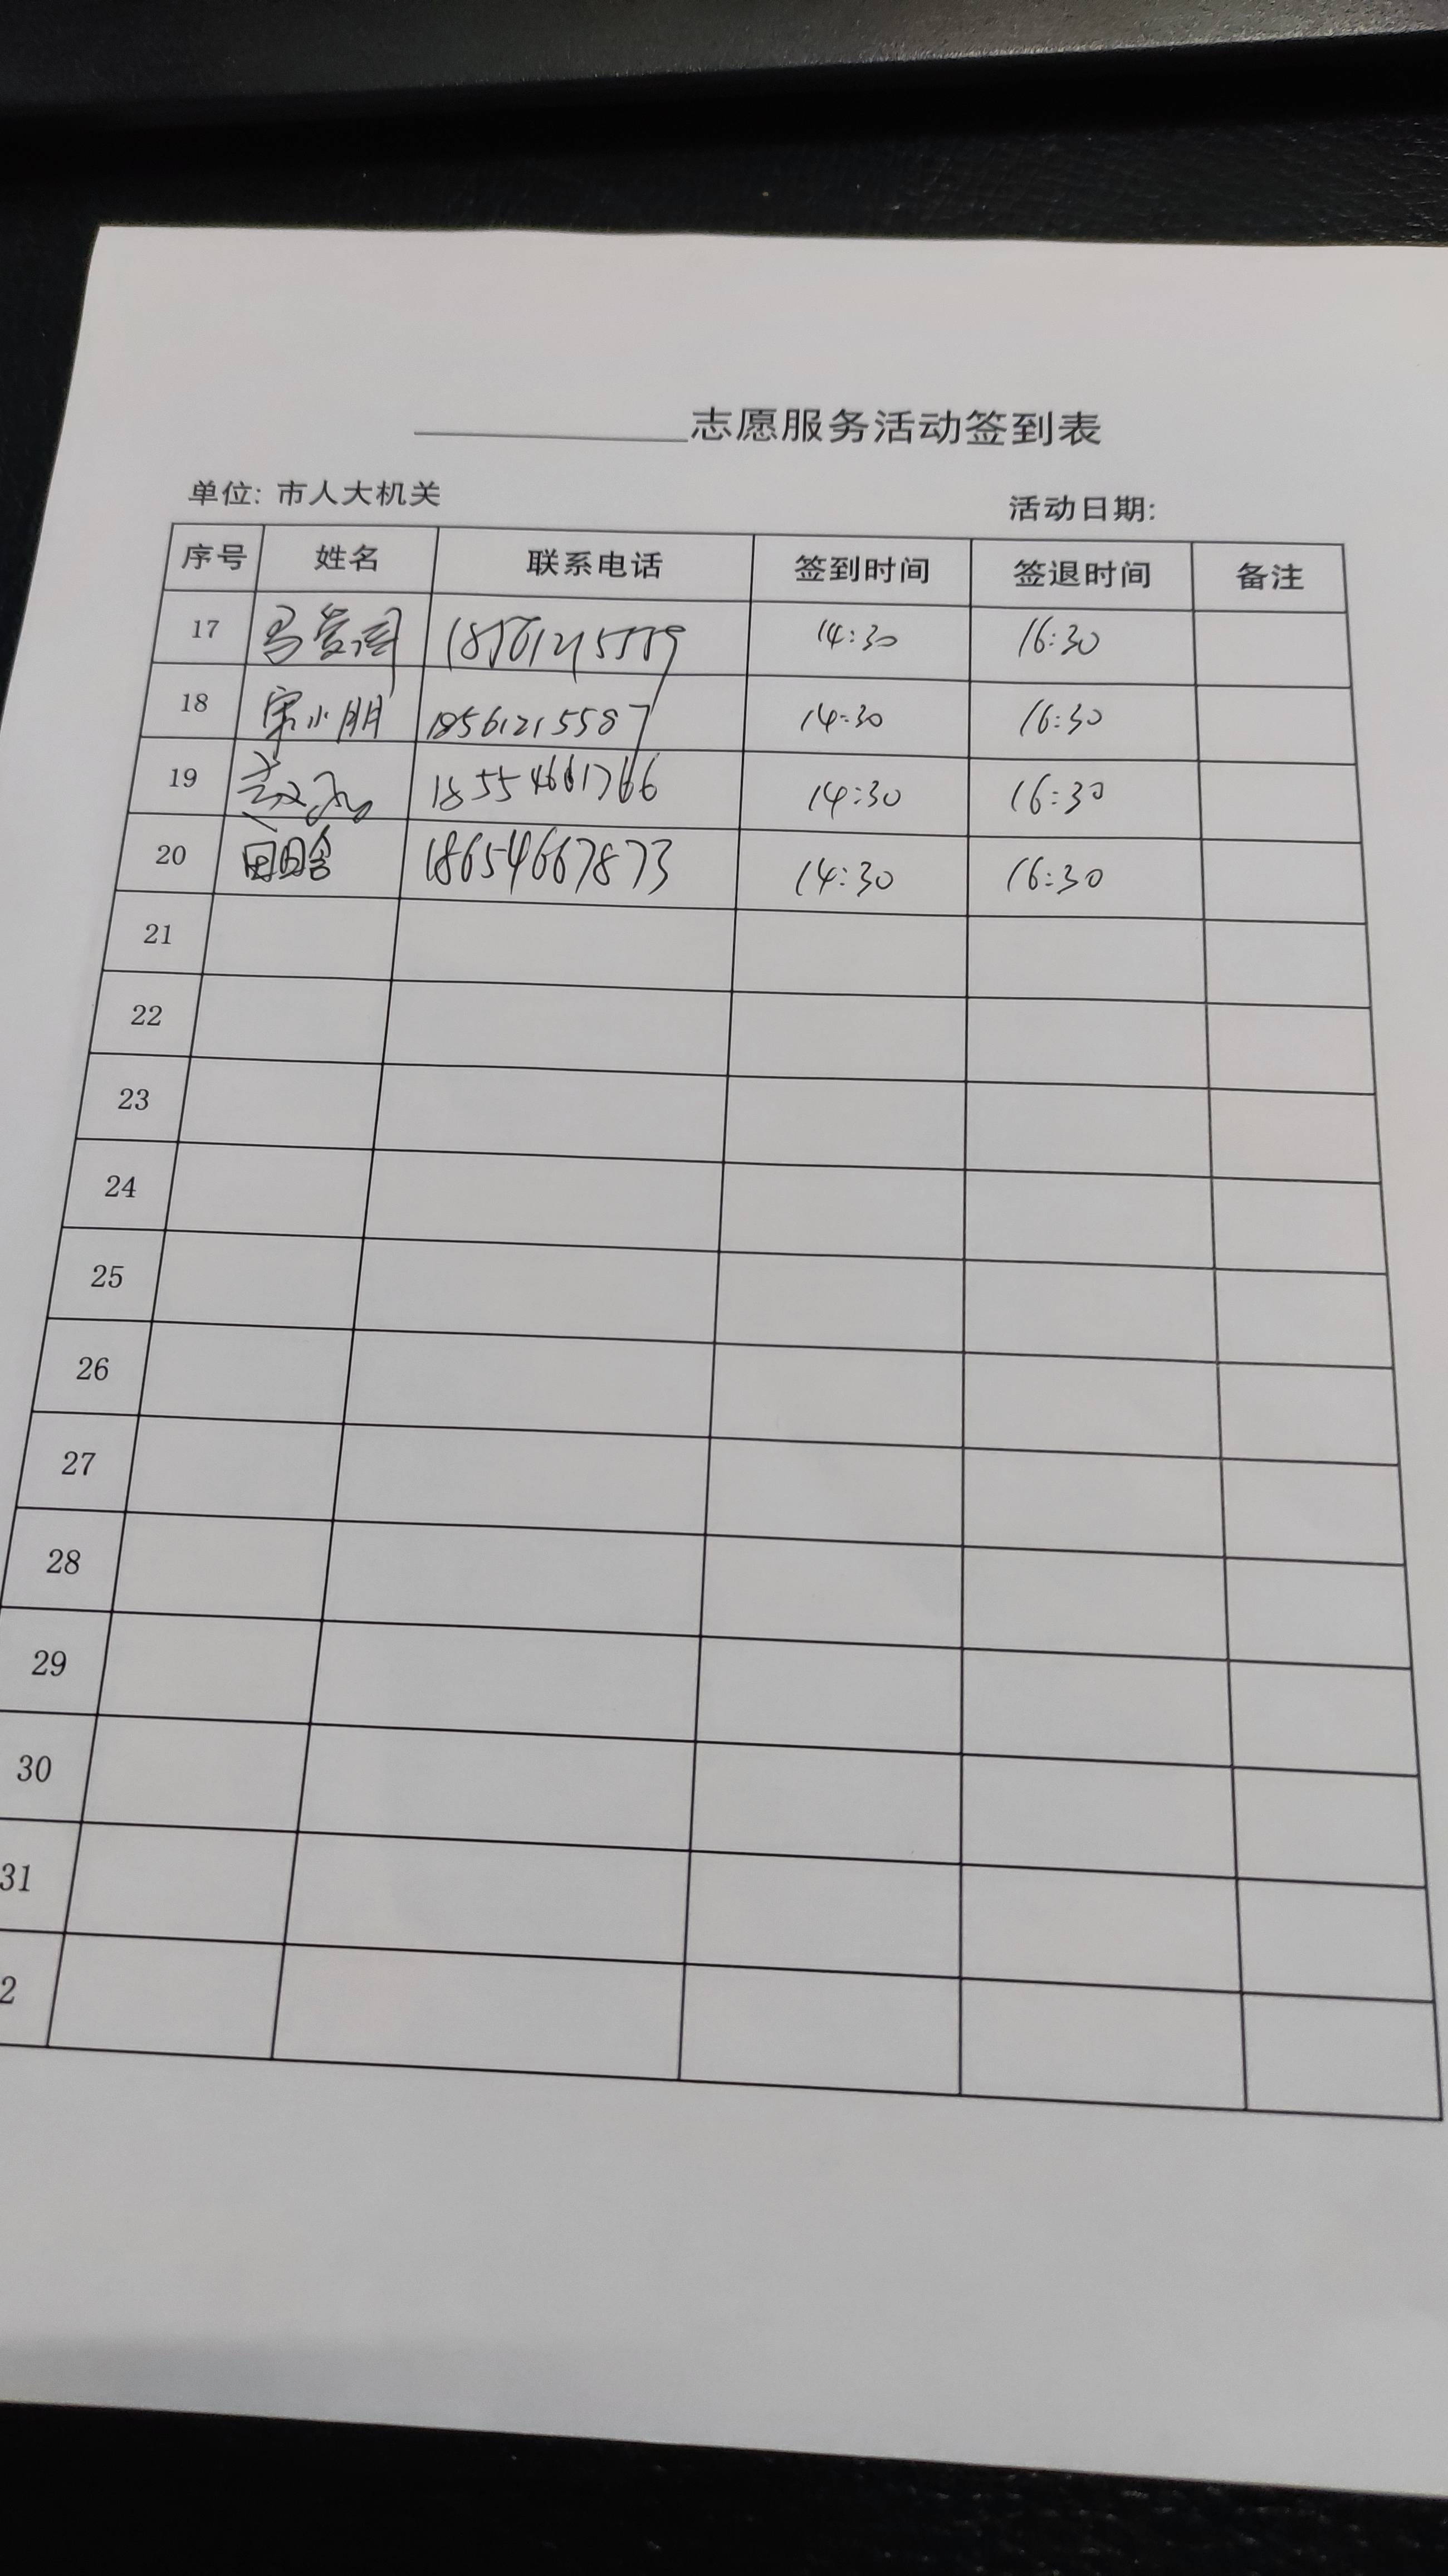 志愿服务活动签到表
单位: 市人大机关 活动日期:
序号 姓名 联系电话 签到时间 签退时间 备注
17 14:30 16:30
18 宋小朋 18561215587 14:30 16:30
19 18554661766 14:30 16:30
20 18654667873 14:30 16:30
21
22
23
24
25
26
27
28
29
30
31
2